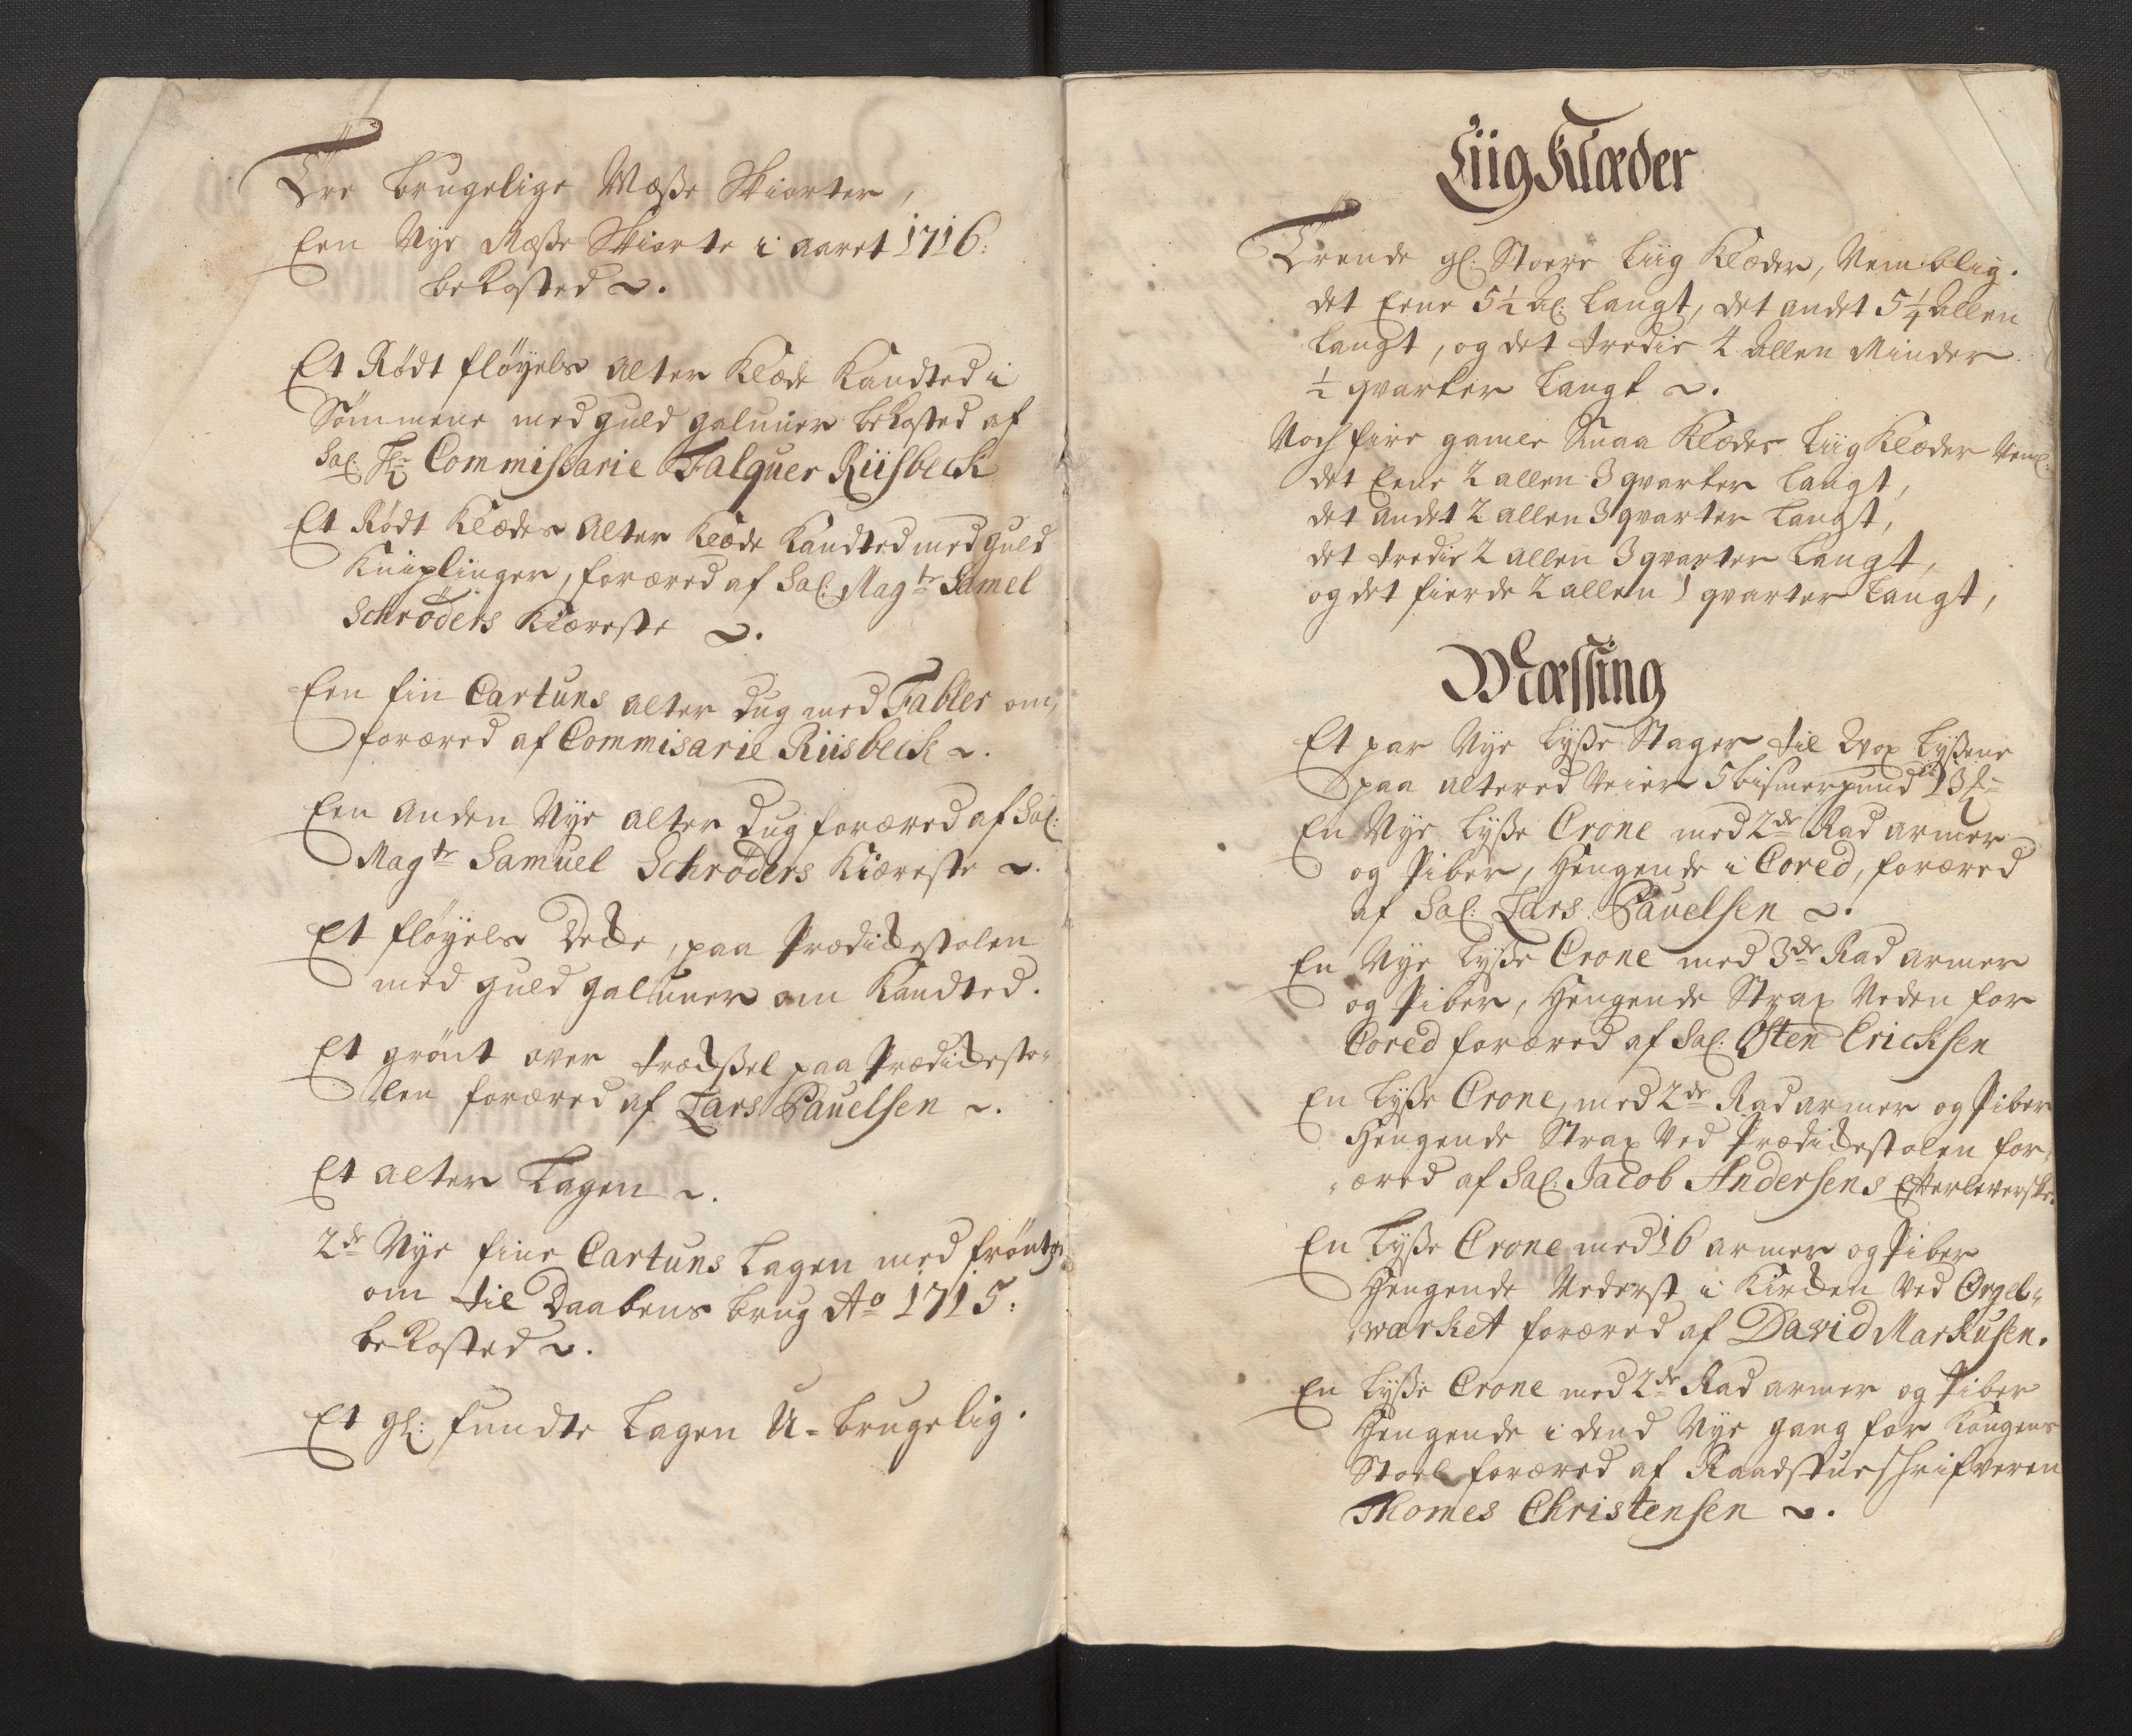 Tre brugelige Mæsse Skiorter,
Een Nye Mæsse Skiorte i aaret 1716:
bekosted ~.
Et Rødt fløyels alter Klæde Kandted i
Sømmene med guld galuner bekosted af
Sal: Hr Commissarie Falquer Riisbeck
Et Rødt Klædes Alter Klæde Kandted med guld
Kniplinger, foræred af Sal: Magtr Samel
Schrøders Kiæreste ~.
Een fin Cartuns alter dug med Fabler om,
foræred af Commisarie Riisbeck ~.
Een anden Nye alter dug foræred af Sal:
Magtr Samuel Schrøders Kiæreste ~.
Et fløyels Decke, paa Prædickestolen
med guld galuner om Kandted.
Et grønt over træcksel paa Prædickesto-
len foræred af Lars Pauelsen ~.
Et alter Lagen ~.
2de Nye fine Cartuns Lagen med frøntzer
om til Daabens brug Ao 1715:
bekosted ~.
Et gl: fundte Lagen U-brugelig.
Liig Klæder
Trende gl: Stoere Liig Klæder, Nemblig.
det Eene 5 1/2 al: Langt, det andet 5 1/4 allen
Langt, og det tredie 4 allen Minder
1/2 qvarter Langt ~.
Noch fire gamle Smaa Klædes Liig Klæder Neml:
det Eene 2 allen 3 qvarter Langt,
det andet 2 allen 3 qvarter Langt,
det tredie 2 allen 3 qvarter Langt,
og det fierde 2 allen 1 qvarter Langt,
Mæssing
Et par Nye Lysse Stager til Vox Lyssene
paa altered Veier 5 bismerpund 13 
En Nye Lysse Crone med 2de Rad armer
og Piber, Hengende i Cored, foræred
af Sal: Lars Pauelsen ~.
En Nye Lysse Crone med 3de Rad armer
og Piber, Hengende Strax Neden for
Cored foræred af Sal: Osten Ericksen
En Lysse Crone, med 2de Rad armer og Piber
Hengende Strax Ved Prædickestolen for-
æred af Sal: Jacob Andersens Efterleverske.
En Lysse Crone med 16 armer og Piber
Hengende Nederst i Kircken Ved Orgel-
wærket foræred af David Markusen.
En Lysse Crone med 2de Rad armer og Piber
Hengende i dend Nye gang for Kongens
Stoel foræred af Raadstueschrifveren
Thomes Christensen ~.